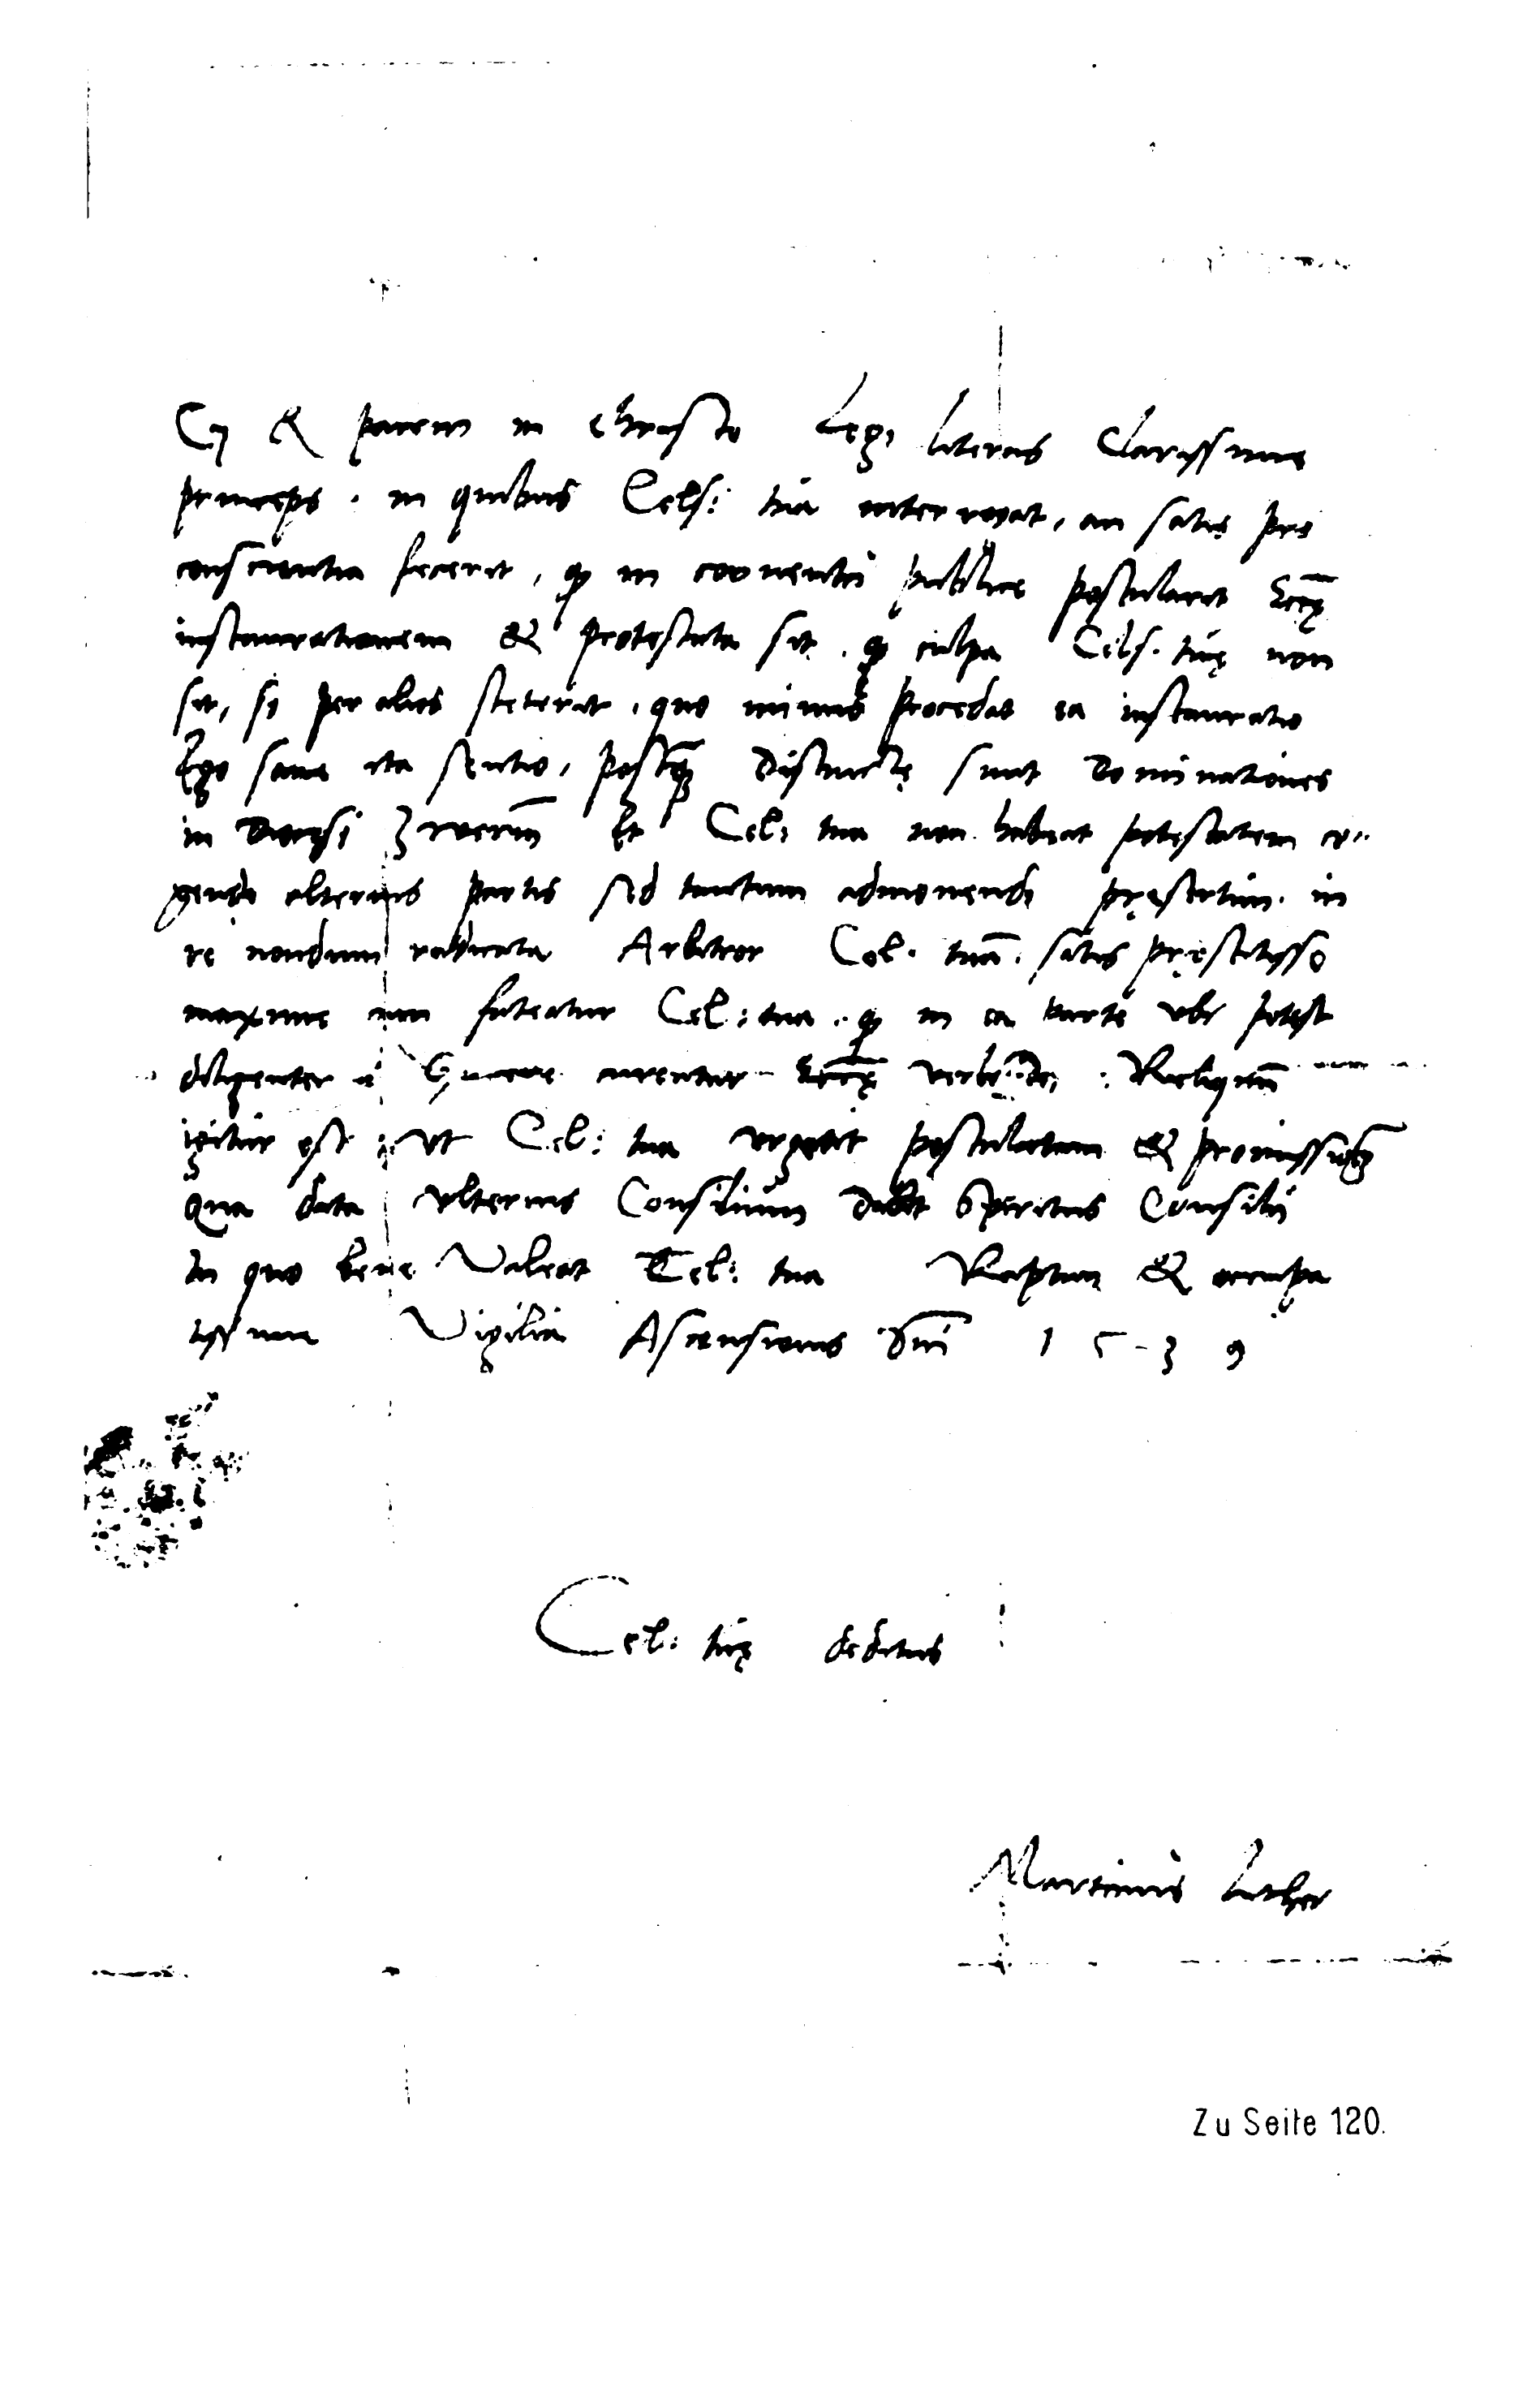 G & pacem in Christo Legi literas Clarissime
princeps . in quibus Cels: tua interrogat, an satis pro
conscientia fecerit, ꝙ in conventu publice postularit Eccę
instaurationem & protestata sit . ꝙ culpa Cels. tuę non
sit, si per alios steterit . quo minus procedat ea instauratio
Ego sane ita sentio, postꝗ̃ Distinctę sunt Dominationes
in Et Cel: tua non habeat potestatem co..
gendi alterius partis sed tantum admonendi pręsertim . in
re nondum radicata Arbitror Cel. tuã . satis pręstitisse
maxime cum fateatur Cel: tua . ꝙ in ea parte ubi potest
diligenter & curentur Eccę verbi dei : Reliquũ
igitur est : Vt Cel: tua urgeat postulatam &
Qua data ulterius Consilium dabit Spiritus Consilii
In quo bene Valeat Cel: tua Raptim & occupa
tissime Vigilia Ascensionis Dñi 1539
Cel: tuę deditus
Martinus Luther
Zu Seite 120.